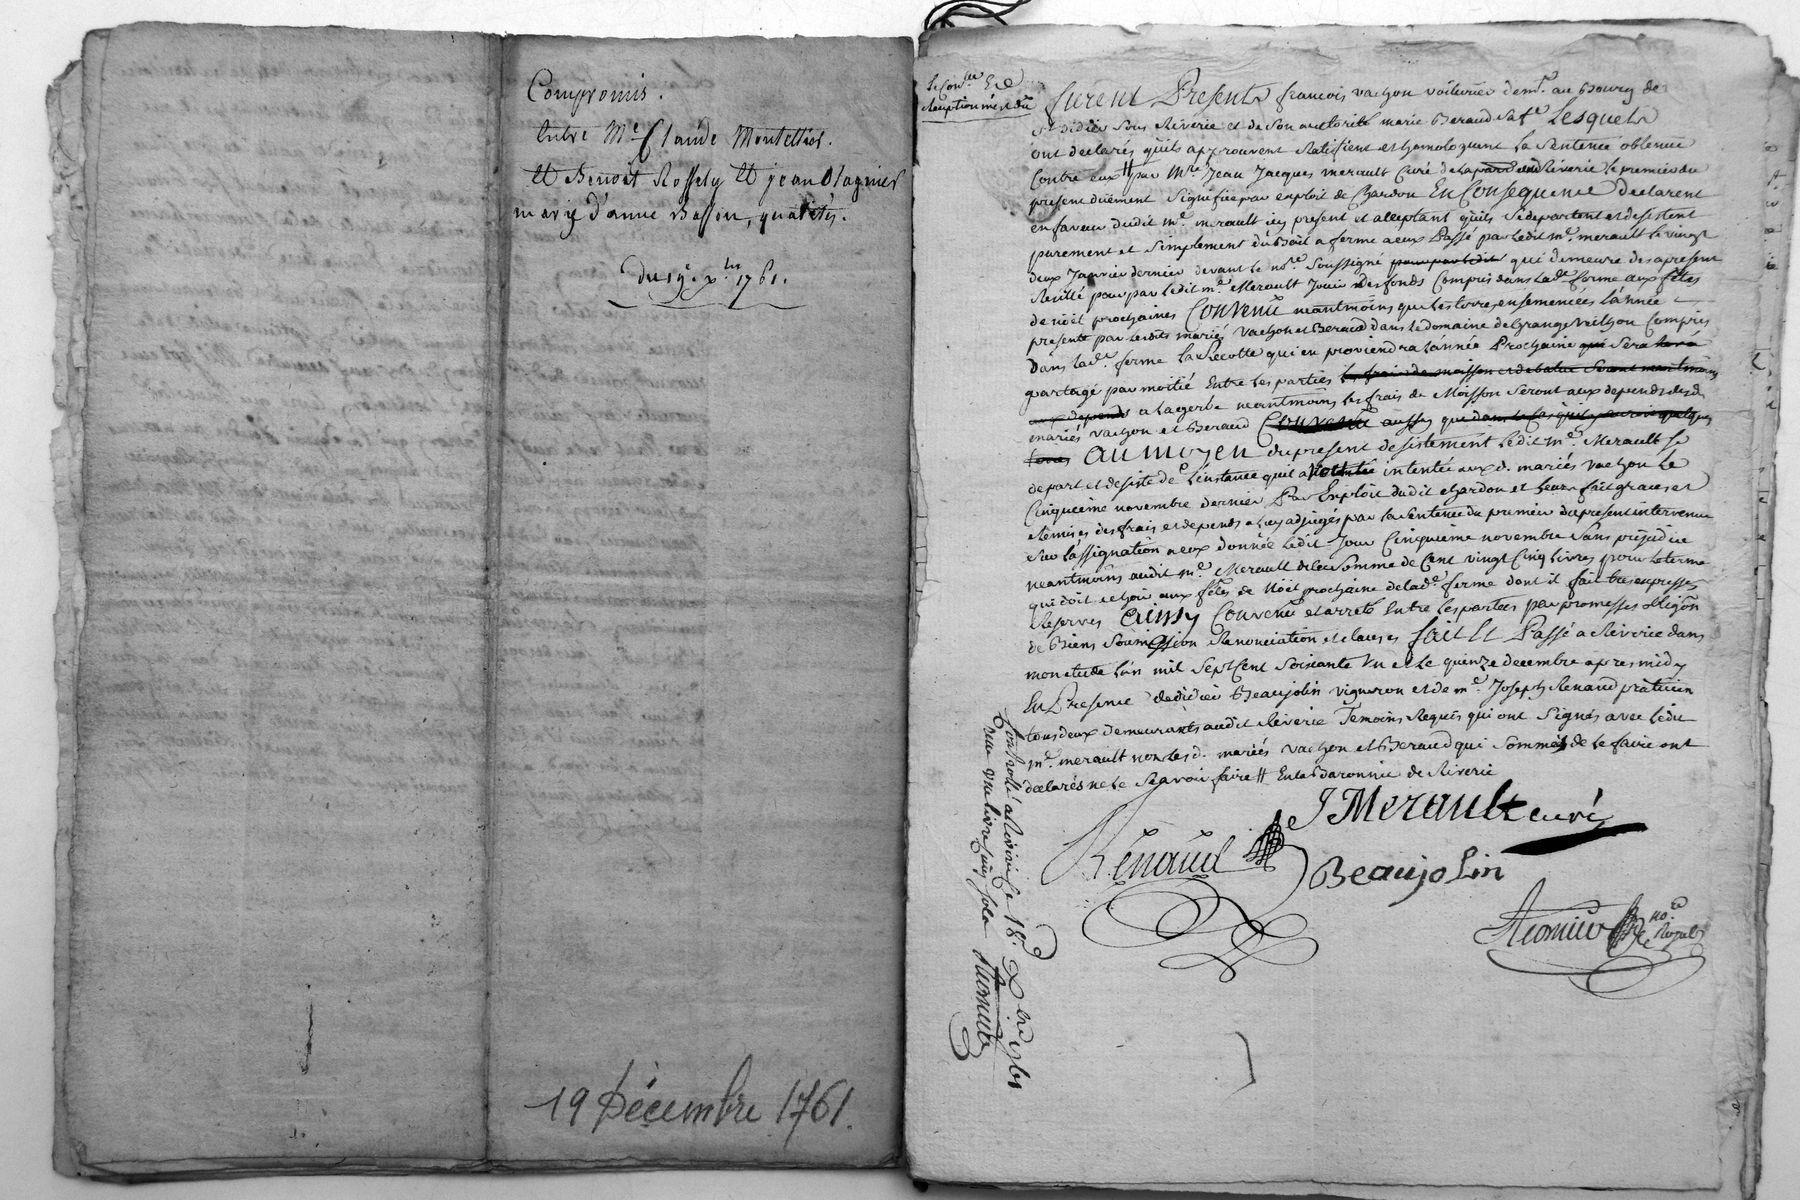 Compromis.
Entre Me Claude Montellier.
Et Benoit Rossely Et jean Olagnier
marÿ d'anne Bassin, qualités.
Du 19e Xbre 1761.
19 Décembre 1761.
furent Presents francois vachon voiturier demt. au Bourg de
st didier sous Riverie et de son authorité marie Beraud sa fe Lesquels
ont declarés qu'ils approuvent Ratifient et homologuent la Sentence obtenue
Contre eux # par mre Jean Jacques merault Curé de Riverie le premier du
present düement Signifiée par exploit de Chardon En Consequence declarent
en faveur dudit me. merault icy present et acceptant qu'ils Se departent et desistent
purement et Simplement du Bail a ferme a eux Passé par ledit me. merault le vingt
deux Janvier dernier devant le nore. Soussigné qui demeure des apresent
Resilié pour par ledit me. Merault Jouir des fonds Compris dans lade. ferme aux fêtes
de noël prochaines Convenu neantmoins que les terres ensemencées l'année
presente par lesdits mariés Vachon et Beraud dans le domaine de Grange Vachon Compris
dans lade. ferme la Recolte qui en proviendra l'année Prochaine Sera
partagé par moitié Entre les parties
a la gerbe neantmoins les frais de Moisson Seront aux depends desd.
mariés vachon et Beraud
au moyen du present desistement ledit me. Merault Se
depart et desiste de l'instance quil a intentée aux d. mariés vachon le
Cinquieme novembre dernier Par Exploit dudit chardon et leur fait grace et
Remises des frais et depends a luy adjugés par la Sentence du premier du present intervenue
Sur l'assignation a eux donnée ledit Jour Cinquieme novembre Sans prejudice
neantmoins audit me. Merault de la Somme de Cent vingt Cinq Livres pour le terme
qui doit echoir aux fêtes de Noël prochaine de lade. ferme dont il fait tres expresses
Reserves Ainsy Convenu et arreté Entre les parties par promesses obligõn
de Biens Soumission Renonciation et clauses fait Et Passé a Riverie dans
mon etude l'an mil Sept Cent Soixante Un et le quinze decembre apres midy
En Presence de didier Beaujolin vigneron et de me. Joseph Renaud praticien
tous deux demeurants audit Riverie Temoins Requis qui ont Signés avec ledit
me. merault non les d. mariés vachon et Beraud qui Sommés de le faire ont
declarés ne le Sçavoir faire # En la Baronnie de Riverie
J Merault curé
Renaud
Beaujolin
nore Royal
Controllé a Riverie le 18e. Xbre 1761
Reçu